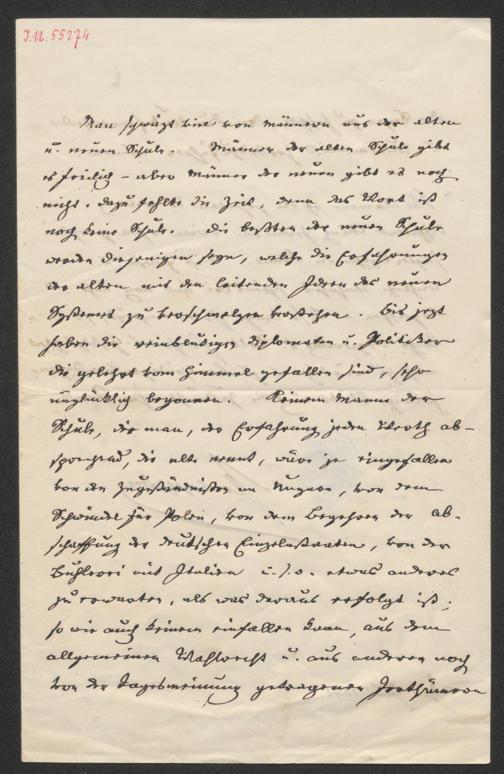 I.N. 55274
Man schwäzt viel von Männern aus der alten
u. neuen Schule. Männer der alten Schule gibt
es freilich – aber Männer der neuen gibt es noch
nicht. dazu fehlte die Zeit, denn das Wort ist
noch keine Schule. die beßten der neuen Schule
werden diejenigen seyn, welche die Erfahrungen
der alten mit den leitenden Ideen des neuen
Systemes zu verschmelzen verstehen. bis jezt
haben die reinblütigen diplomaten u. Politiker
die gelehrt vom Himmel gefallen sind, sehr
unglücklich begonnen. Keinem Manne der
Schule, die man, der Erfahrung jeden Werth ab-
sprechend, die alte nennt, wäre je eingefallen
von den Zugeständnißen an Ungarn, von dem
Schwindel für Polen, von dem Begehren der Ab-
schaffung der deutschen Einzelnstaaten, von der
Buhlerei mit Italien u.s.w. etwas anderes
zu erwarten, als was daraus erfolgt ist;
so wie auch keinem einfallen kann, aus dem
allgemeinen Wahlrecht u. aus anderen noch
von der Tagesmeinung getragenen Irrthümern